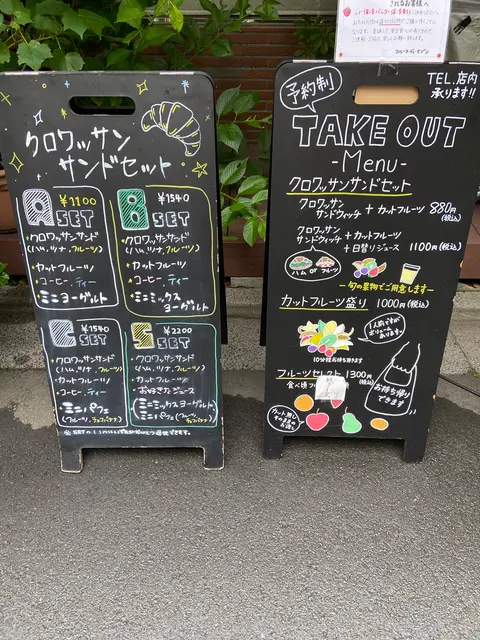 クロワッサン
サンドセット
A ¥1100
SET
・クロワッサンサンド
(ハム, ツナ, フルーツ)
・カットフルーツ
・コーヒー, ティー
・ミニヨーグルト
B ¥1540
SET
・クロワッサンサンド
(ハム, ツナ, フルーツ)
・カットフルーツ
・コーヒー, ティー
・ミニミックス
ヨーグルト
C ¥1540
SET
・クロワッサンサンド
(ハム, ツナ, フルーツ)
・カットフルーツ
・コーヒー, ティー
・ミニパフェ
(フルーツ, チョコバナナ)
S ¥2200
SET
・クロワッサンサンド
(ハム, ツナ, フルーツ)
・カットフルーツ
・お好きなジュース
(ミニミックスヨーグルト)
(ミニパフェ (フルーツ, チョコバナナ)
予約制
TEL. 店内
承ります!!
TAKE OUT
-Menu-
クロワッサンサンドセット
クロワッサン
サンドウィッチ + カットフルーツ 880円
(税込)
クロワッサン
サンドウィッチ + カットフルーツ
+ 日替りジュース 1100円(税込)
ハム or フルーツ
ー旬の果物でご用意しますー
カットフルーツ盛り 1000円(税込)
1人前ですが
ボリュームあり
ます。
10分程お待ち頂きます
フルーツセレクト 1300円
(税込)
食べ頃フ
お持ち帰り
できます
カット無し